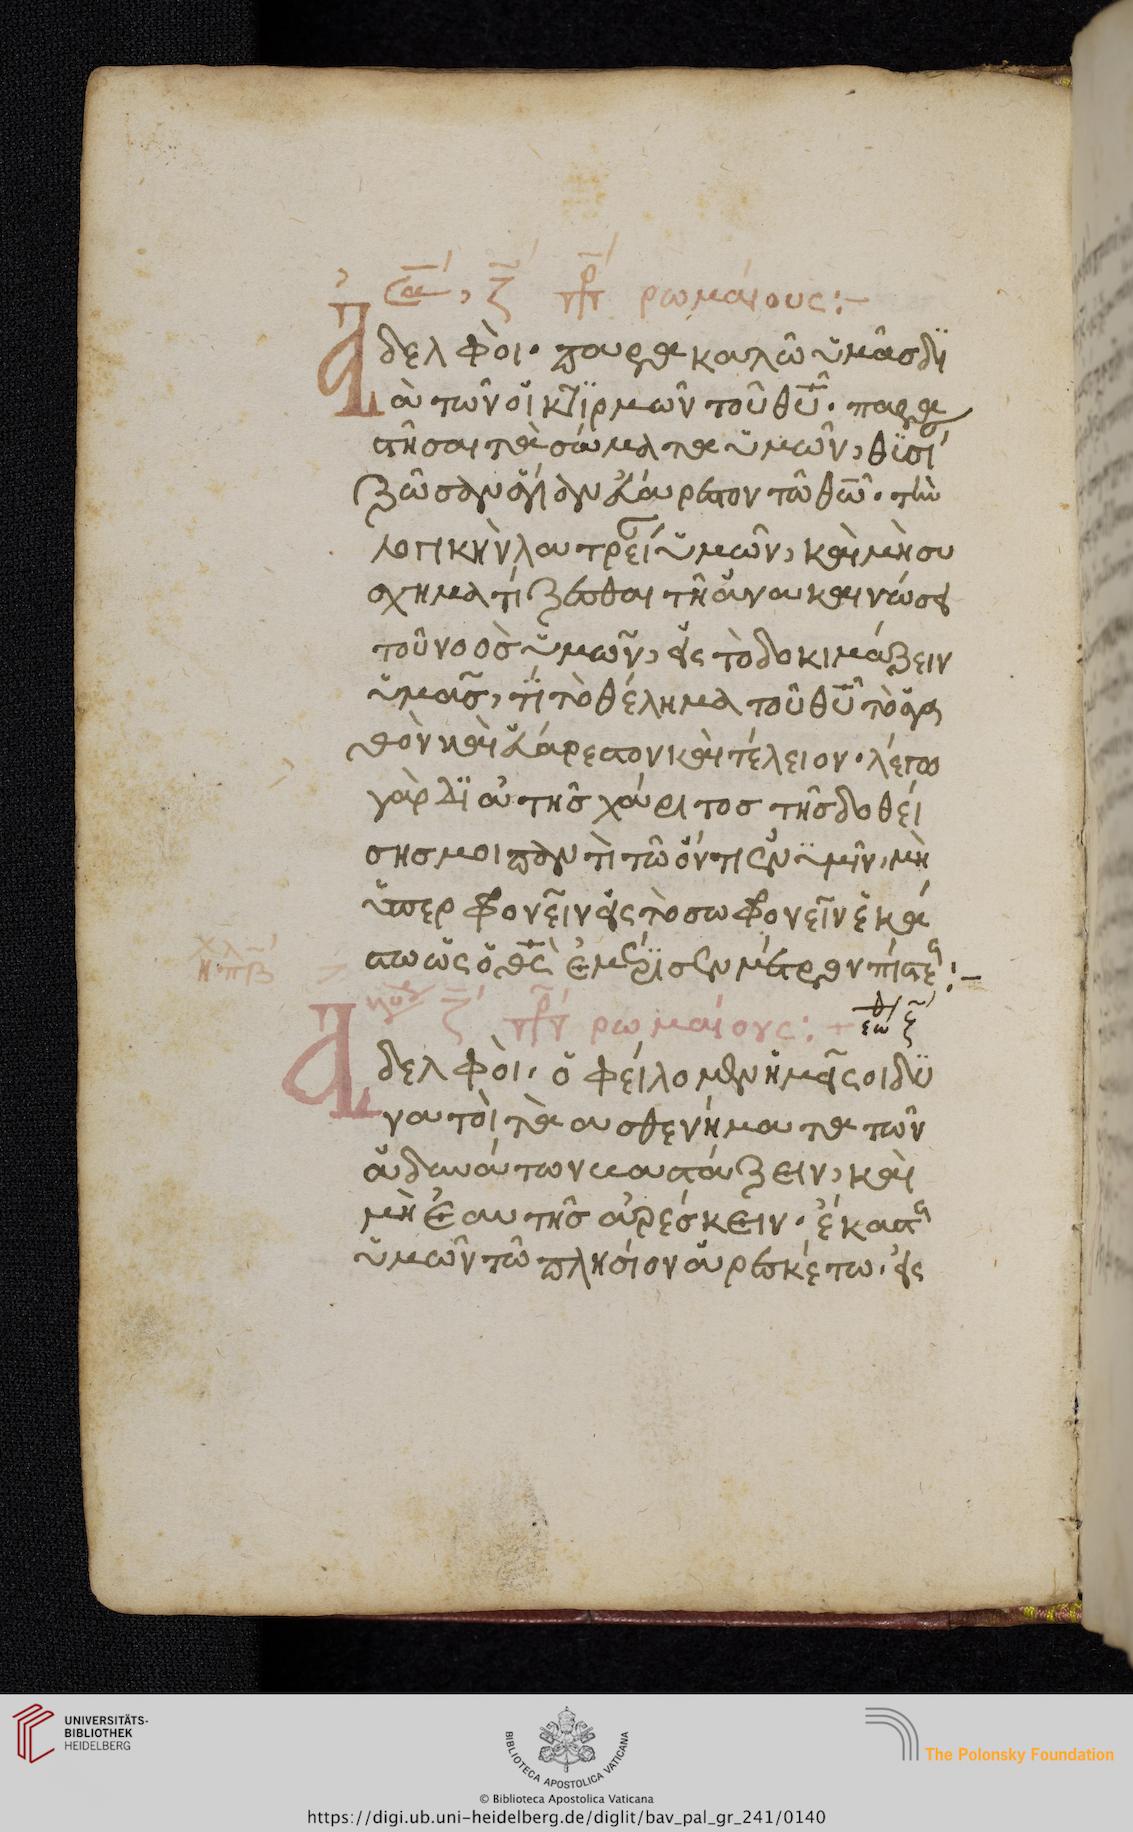 ζ πρ ρωμαίους:–
Ἀδελφὸι· παρακαλῶ ὑμᾶσ δϊ
ὰ τῶν οἰκτϊρμῶν τοῦ θῦ· παρα
στῆσαι τὰ σώματα ὑμῶν, θϊσί
ζῶσαν ἁγίαν εὐάρεστον τῶ θῶ· τὴν
λογικὴν λατρεί ὑμῶν, καὶ μὴ συ
σχηματίζεσθαι τῆ ἀνακαινώσει
τοῦ νοὸσ ὑμῶν, εἰς τὸ δοκιμάζειν
ὑμᾶσ, τί τὸ θέλημα τοῦ θῦ τὸ ἀγα
θὸν καὶ εὐάρεστον καὶ τέλειον· λέγω
γὰρ δϊὰ τῆσ χάριτοσ τῆσ δοθεί
σησ μοι παντὶ τῶ ὄντι ἐν ὑμῖν, μὴ
ὑπερφρονεῖν εἰς τὸ σωφρονεῖν ἑκά
στω ὡς ὁ θς ἐμέρϊσεν μέτρον πίστεως:–
ζ πρ ρωμαίους:
Ἀδελφὸι, ὀφείλομεν ἡμεῖς οι δυ
νατὸι τὰ ασθενήματα τῶν
ἀδυνάτων βαστάζειν, καὶ
μὴ ἑαυτῆσ ἀρέσκειν· ἕκαστος
ὑμῶν τῶ πλησίον ἀρεσκέτω, εἰς
UNIVERSITÄTS-
BIBLIOTHEK
HEIDELBERG
BIBLIOTECA APOSTOLICA VATICANA
The Polonsky Foundation
© Biblioteca Apostolica Vaticana
https://digi.ub.uni-heidelberg.de/diglit/bav_pal_gr_241/0140